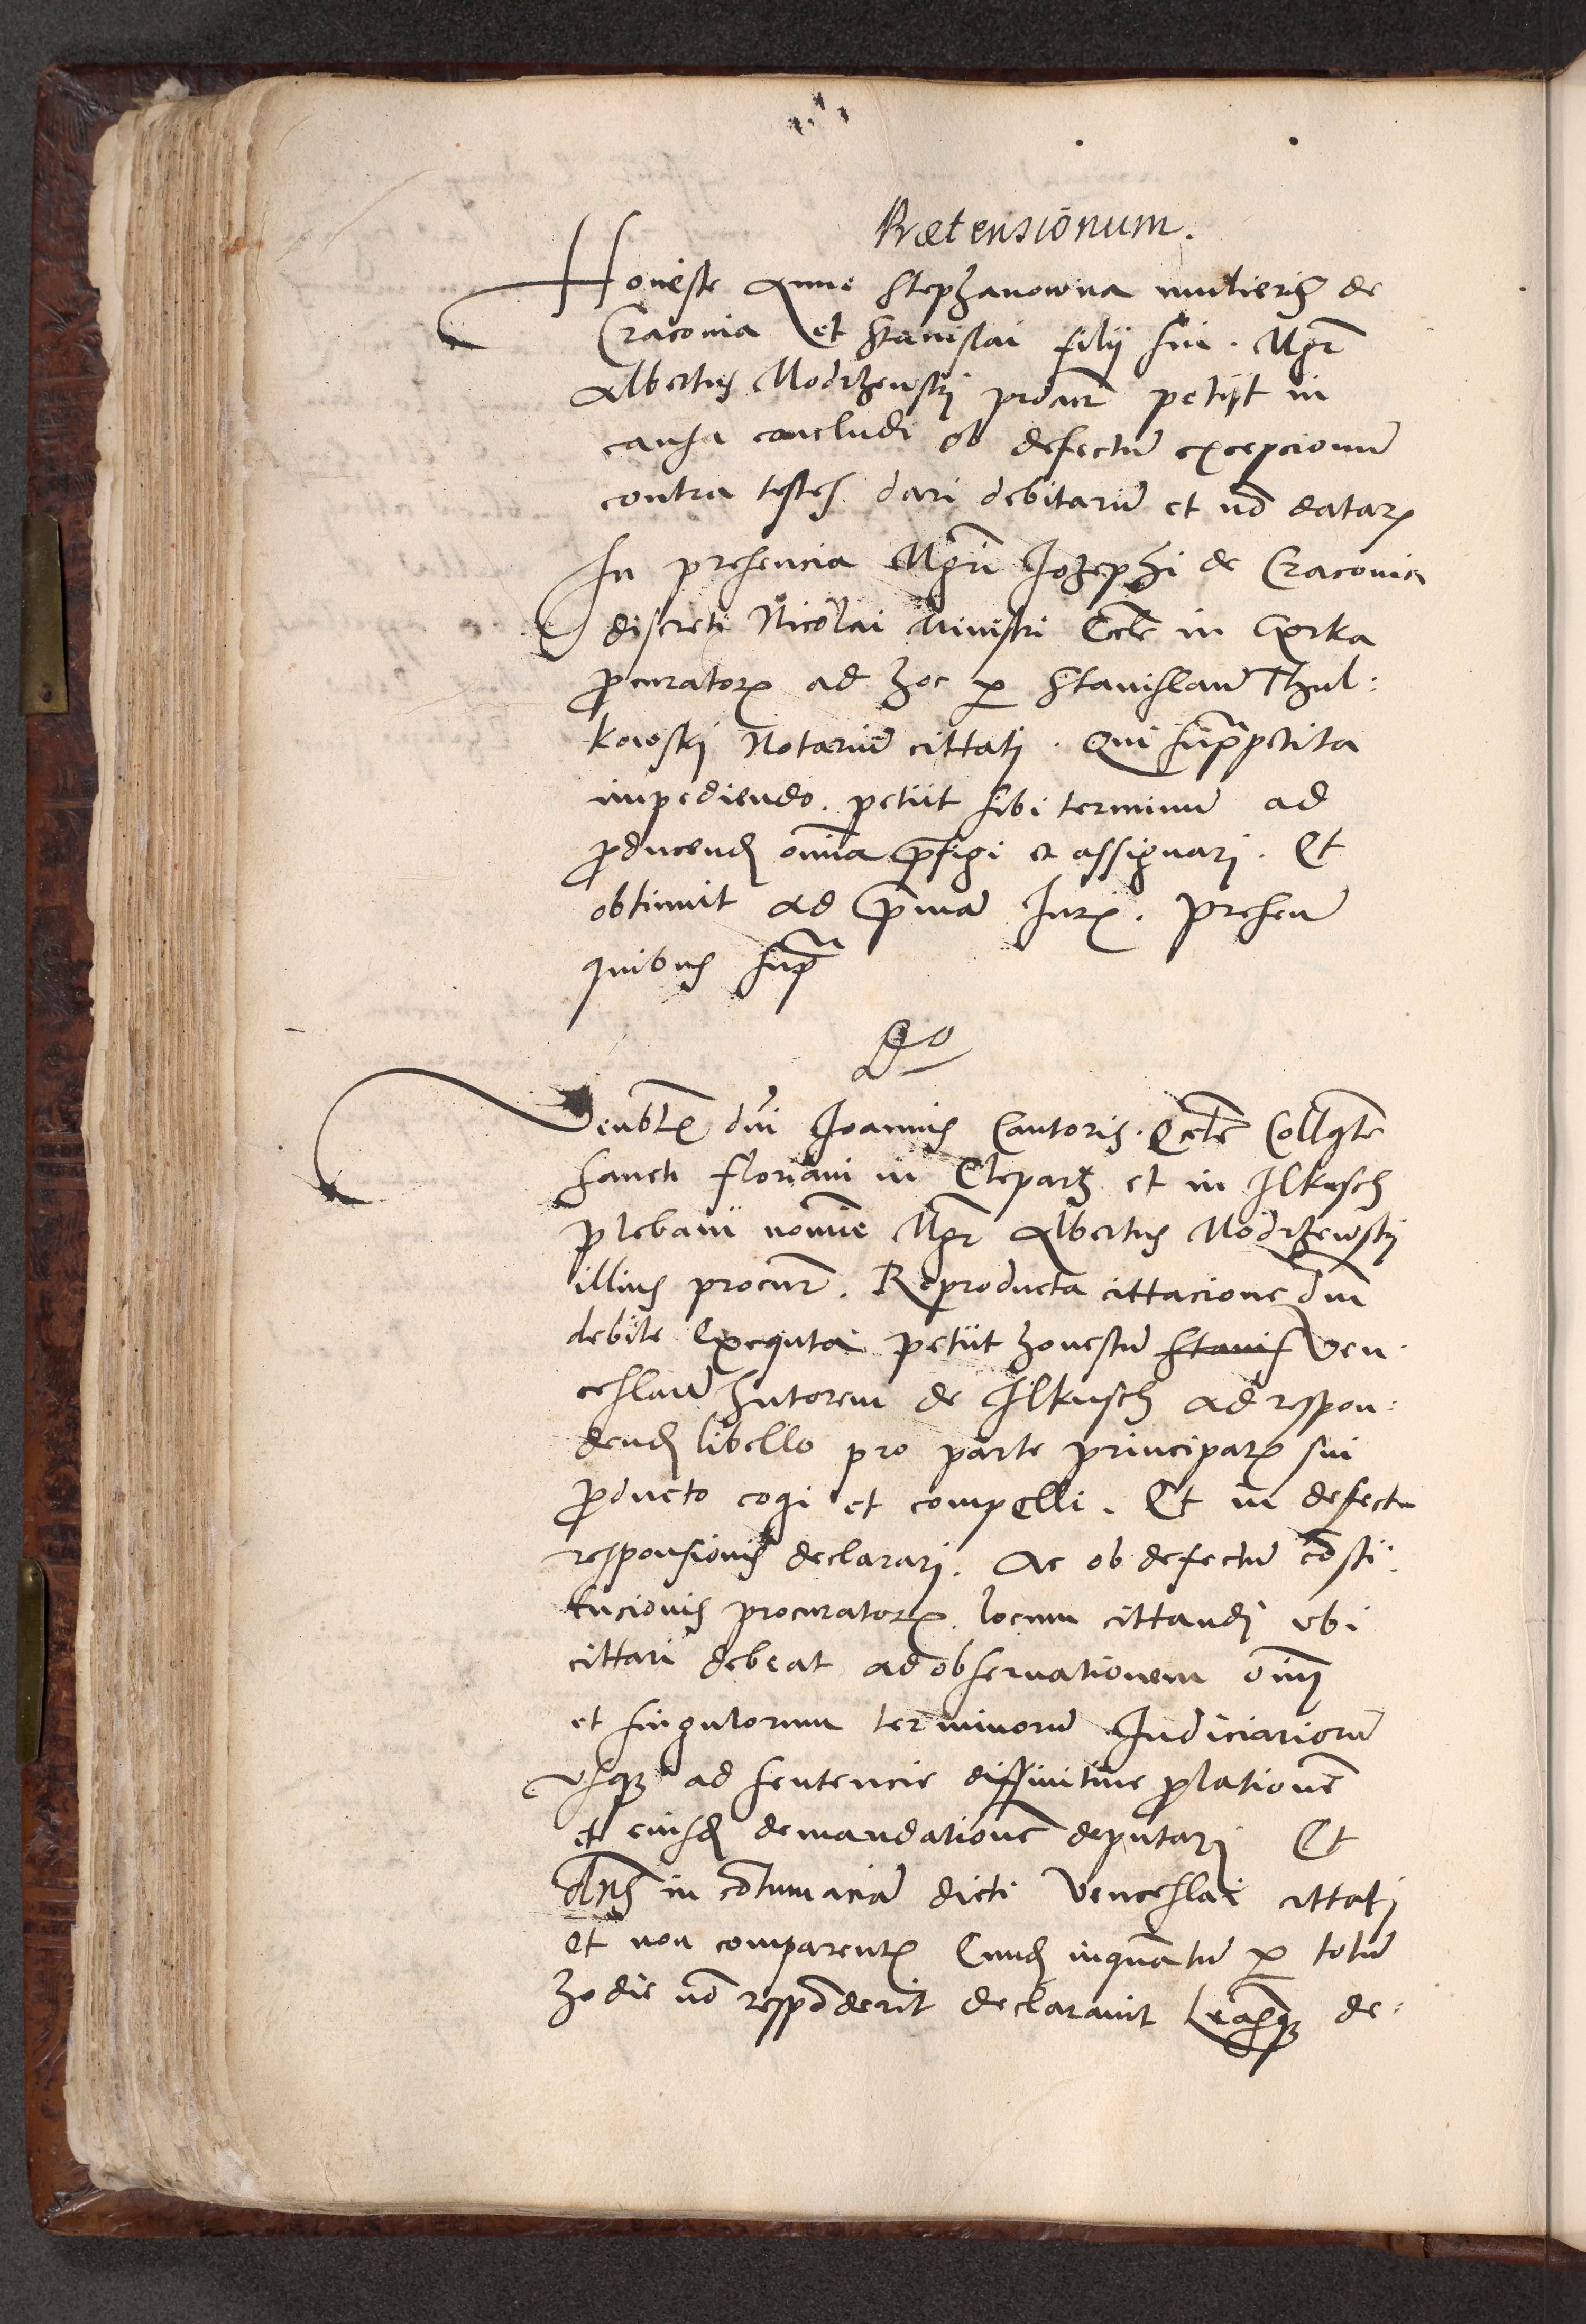 Prætensionum.
Honeste Anne Stephanowna mulieris de
Cracovia et Stanislai filij sui. Mgr
Albertus Modrzewskj procur petijt in
causa concludi ob defectum excepcionum
contra testes dari debitarum et no datarum
In presencia Mgri Jozephi de Cracovia
discreti Nicolai Ministri Eccle in Gorka
procuratoris ad hoc per Stanislaum Thul:
kowskj Notarium cittatj. Qui suprapetita
impediendo. petiit sibi terminum ad
producend omnia prefigi et assignarj. Et
obtinuit ad primam Juris. presen
quibus supra
Do
Venblis dni Joannis Cantoris. Eccle Collgte
sancti Floriani in Cleparz et in Jlkusch
plebani nomine Mgr Albertus Modrzewskj
illius procur. Reproducta cittacione dum
debite Exequta petiit honestum Stanis Ven
ceslaum Sutorem de Jlkusch ad respon:
dend libello pro parte principalis sui
producto cogi et compelli. Et in defectu
responsionis declararj. Ac ob defectum consti:
tucionis procuratoris locum cittandj ubi
cittari debeat ad observationem omnium
et singulorum terminorum Judiciariorum
usque ad sentencie diffinitive prolationem
et eiusdem demandationem deputarj Et
Dns in contumaciam dicti Venceslai cittatj
et non comparentis Eundem inquantum per totum
hodie non responderit declaravit de: